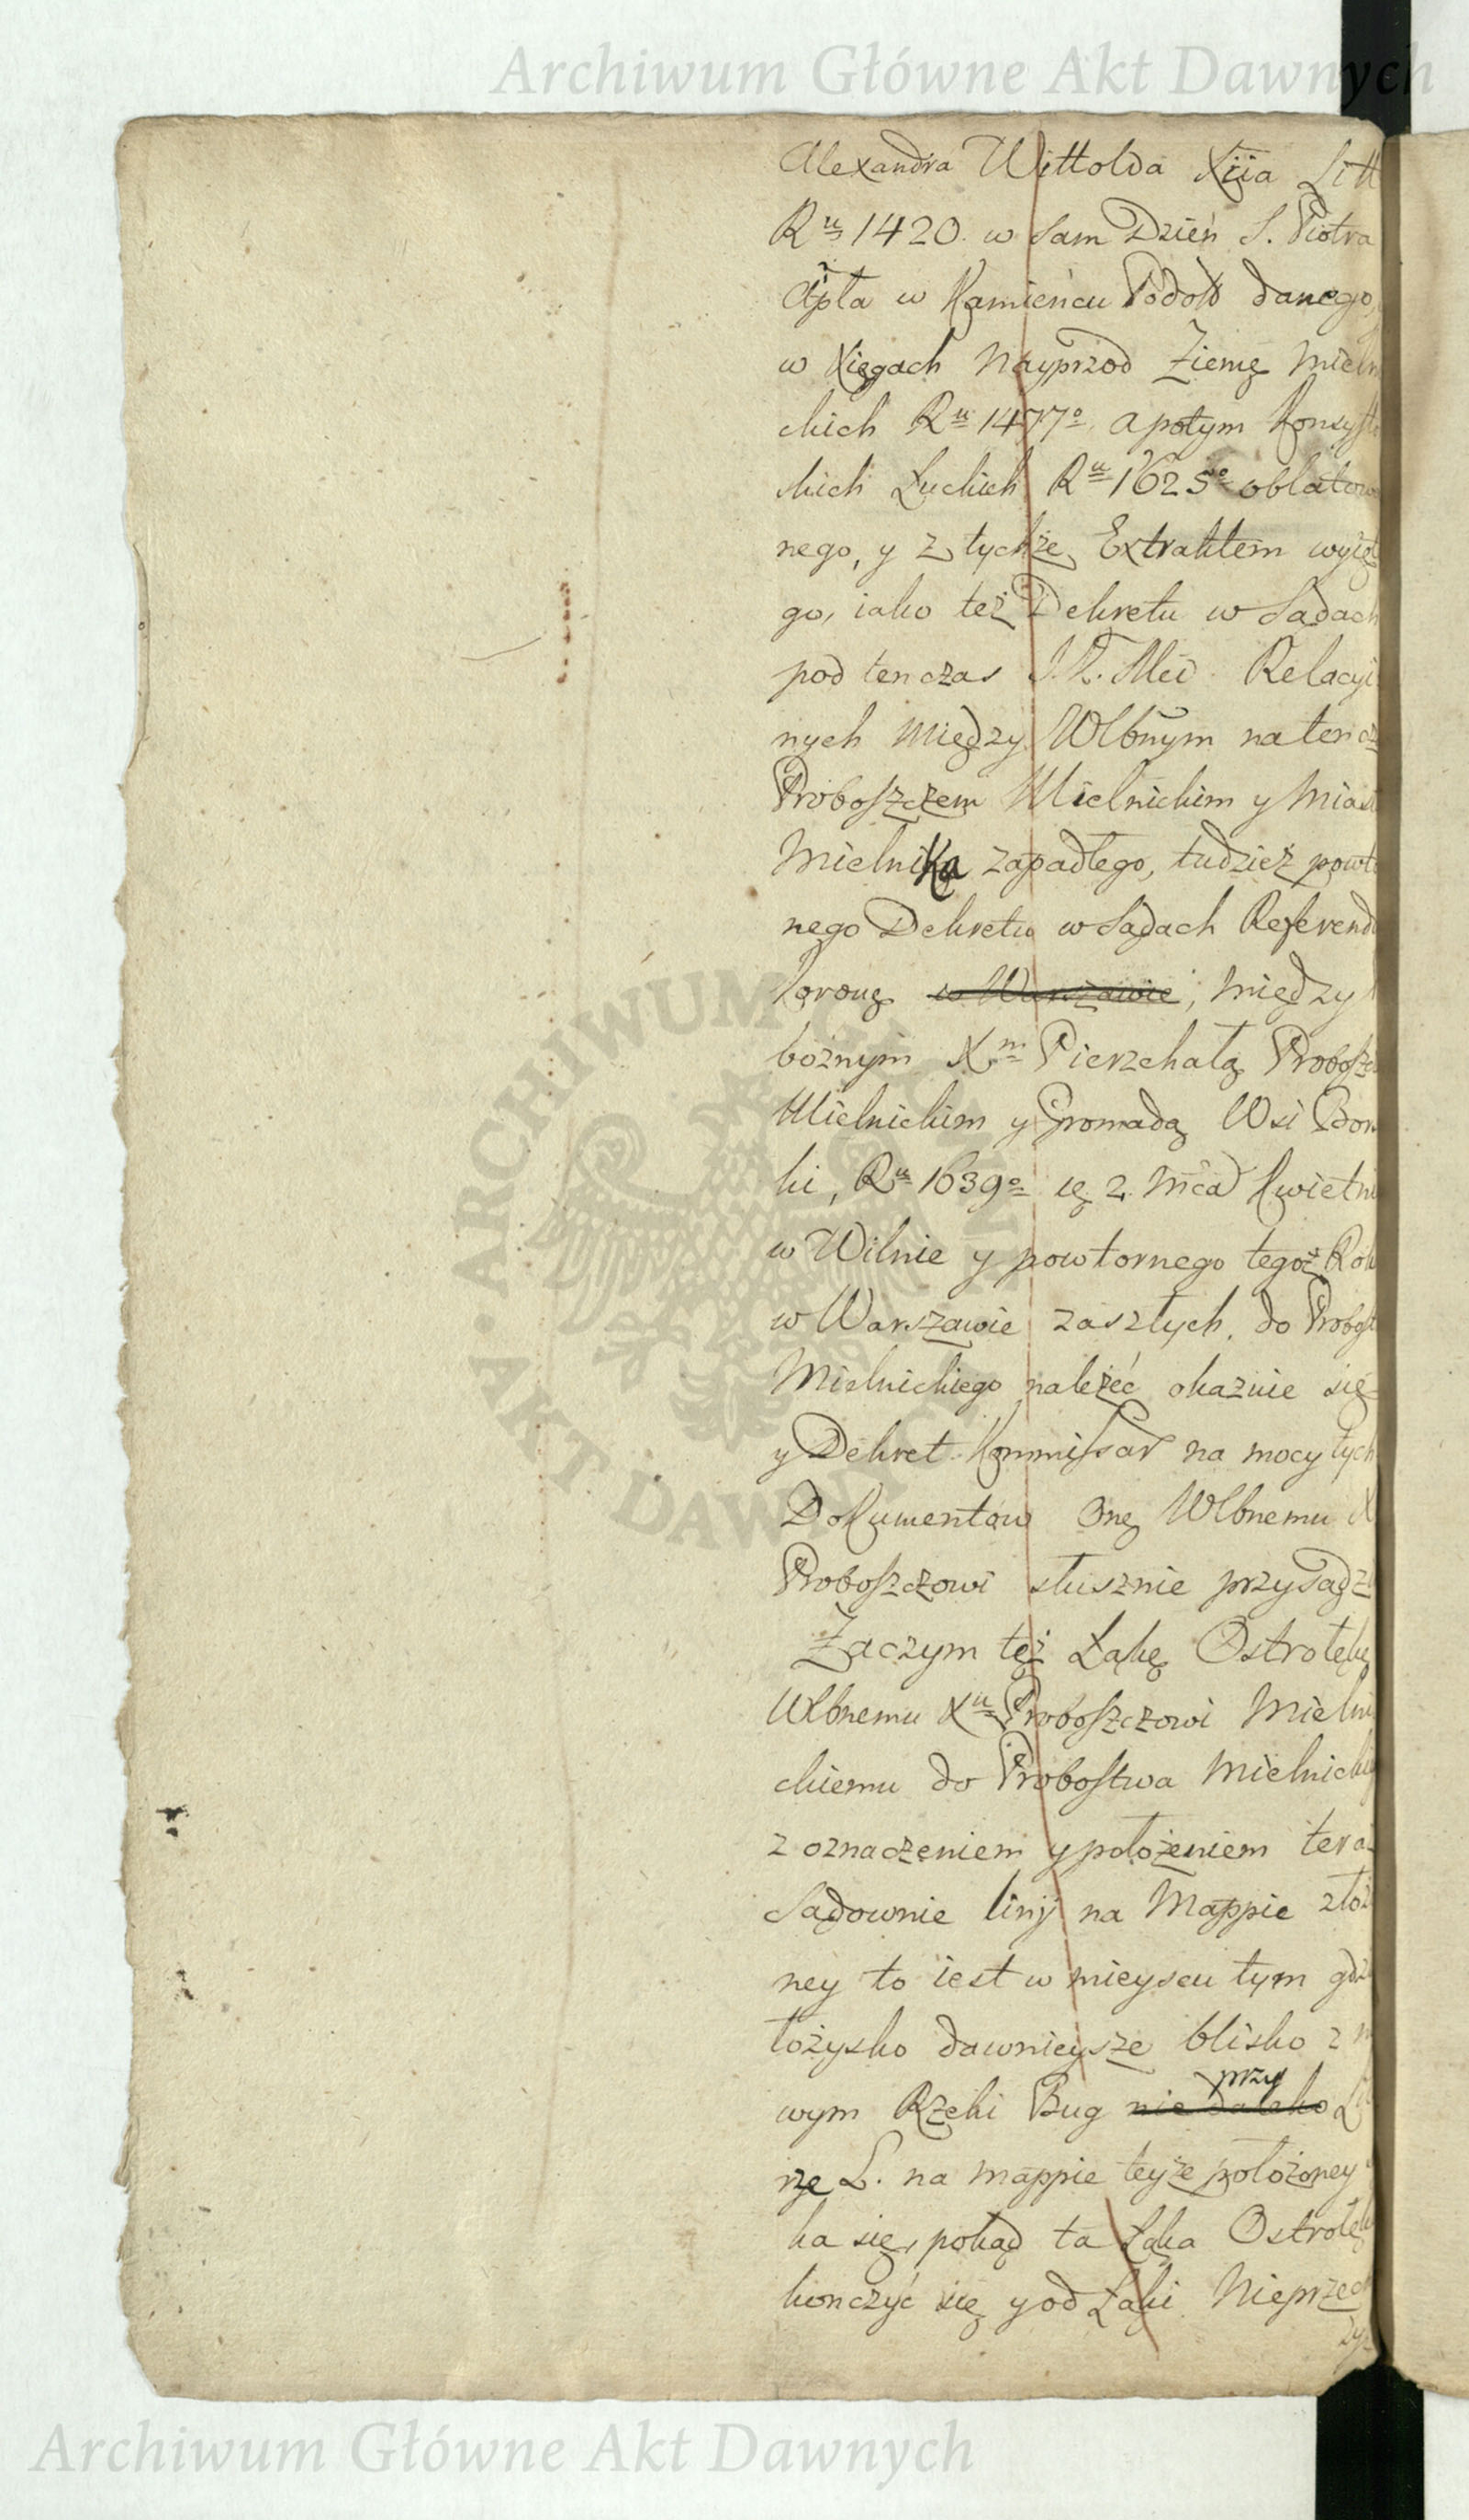 Archiwum Główne Akt Dawnych
Alexandra Wittolda Xiia Litt
Ru 1420. w sam Dzień S. Piotra
Apła w Kamieńcu Podols danego,
w Xięgach Nayprzod Ziemę Mieln
ckich Ru 1477o. a potym Konsysto
kich Łuckich Ru 1625o oblatow
nego, y z tychże Extraktem wyięt
go, iako też Dekretu w Sądach
pod tenczas J. K. Mci Relacyi
nych między Wlbnym na ten cz
Proboszczem Mielnickim y Miast
Mielnika zapadłego, tudzież powto
nego Dekretu w Sądach Referend
Koronę w Warszawie, między
bożnym Xm Pierzchałą Proboszcz
Mielnickim y Gromadą Wsi
ki, Ru 1639o ię 2. Mca Kwietni
w Wilnie y powtornego tegoż Roku
w Warszawie zaszłych, do Probost
Mielnickiego należeć okazuie się
y Dekret Kommissar na mocy tych
Dokumentow Onę Wlbnemu X
Proboszczowi słusznie przysądzi
Zaczym też Łąkę Ostrołękę
Wlbnemu Xu Proboszczowi Mielni
ckiemu do Probostwa Mielnicki
z oznaczeniem y położeniem teraz
Sądownie linij na Mappie złożo
ney to iest w mieyscu tym gdzie
łożysko dawnieysze blisko z n
przy
wym Rzeki Bug nie daleko Li
rze L. na mappie teyże położoney
ka się, pokąd ta Łąka Ostrołęk
kończyć się y od Łąki Nieprzec
ARCHIWUM GŁÓWNE AKT DAWNYCH
Archiwum Główne Akt Dawnych